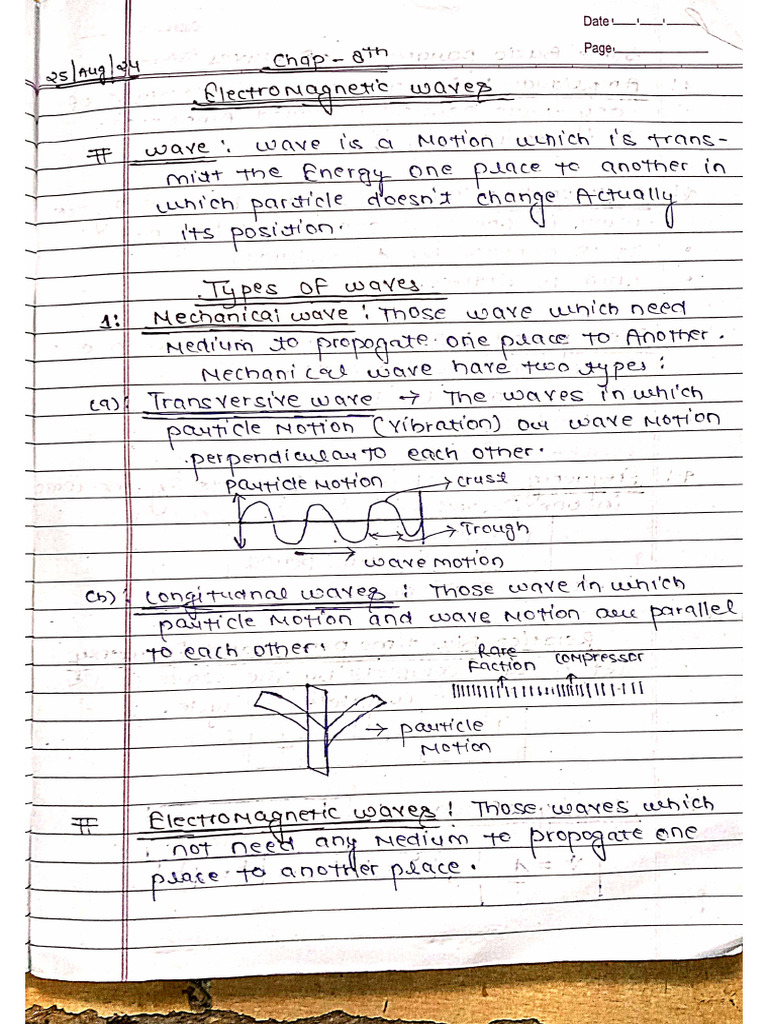 Date
Page
25/Aug/24
Chap - 8th
Electromagnetic waves
# wave: wave is a Motion which is trans-
mitt the Energy one place to another in
which particle doesn't change Actually
its position.
Types of waves
1: Mechanical wave: Those wave which need
Medium to propogate one place to Another.
Mechanical wave have two types:
(a): Transversive wave → The waves in which
particle Motion (vibration) our wave Motion
perpendicular to each other.
particle Motion → crust
→ Trough
wave motion
(b): Longitutnal waves: Those wave in which
particle Motion and wave Motion are parallel
to each other.
Rare
Faction compressor
→ particle
Motion
# Electromagnetic waves: Those waves which
not need any Medium to propogate one
place to another place.